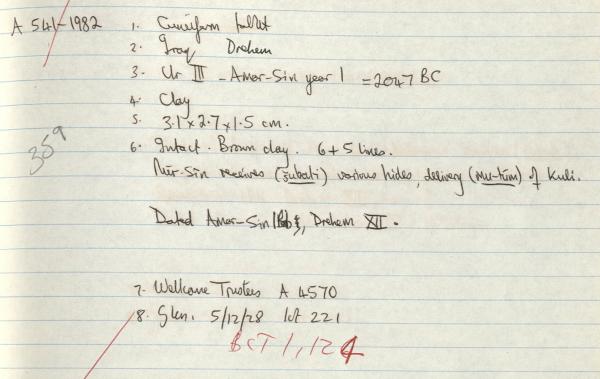 A 541-1982 1. Cuneiform tablet
2. Iraq Drehem
3. Ur III - Amar-Sin year 1 = 2047 BC
4. Clay
5. 3.1 x 2.7 x 1.5 cm.
359
6. Intact. Brown clay. 6 + 5 lines.
Nūr-Sin receives (šubati) various hides, delivery (mu-túm) of Kuli.
Dated Amar-Sin Drehem XII.
7. Wellcome Trustees A 4570
8. Glen. 5/12/28 lot 221
BCT 1, 124